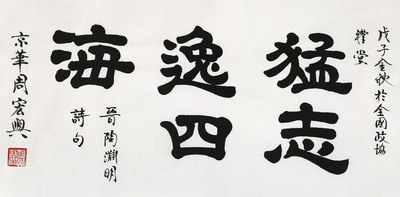 戊子金秋於全國政協
禮堂
猛志
逸四
海
晉陶淵明
詩句
京華周宏興